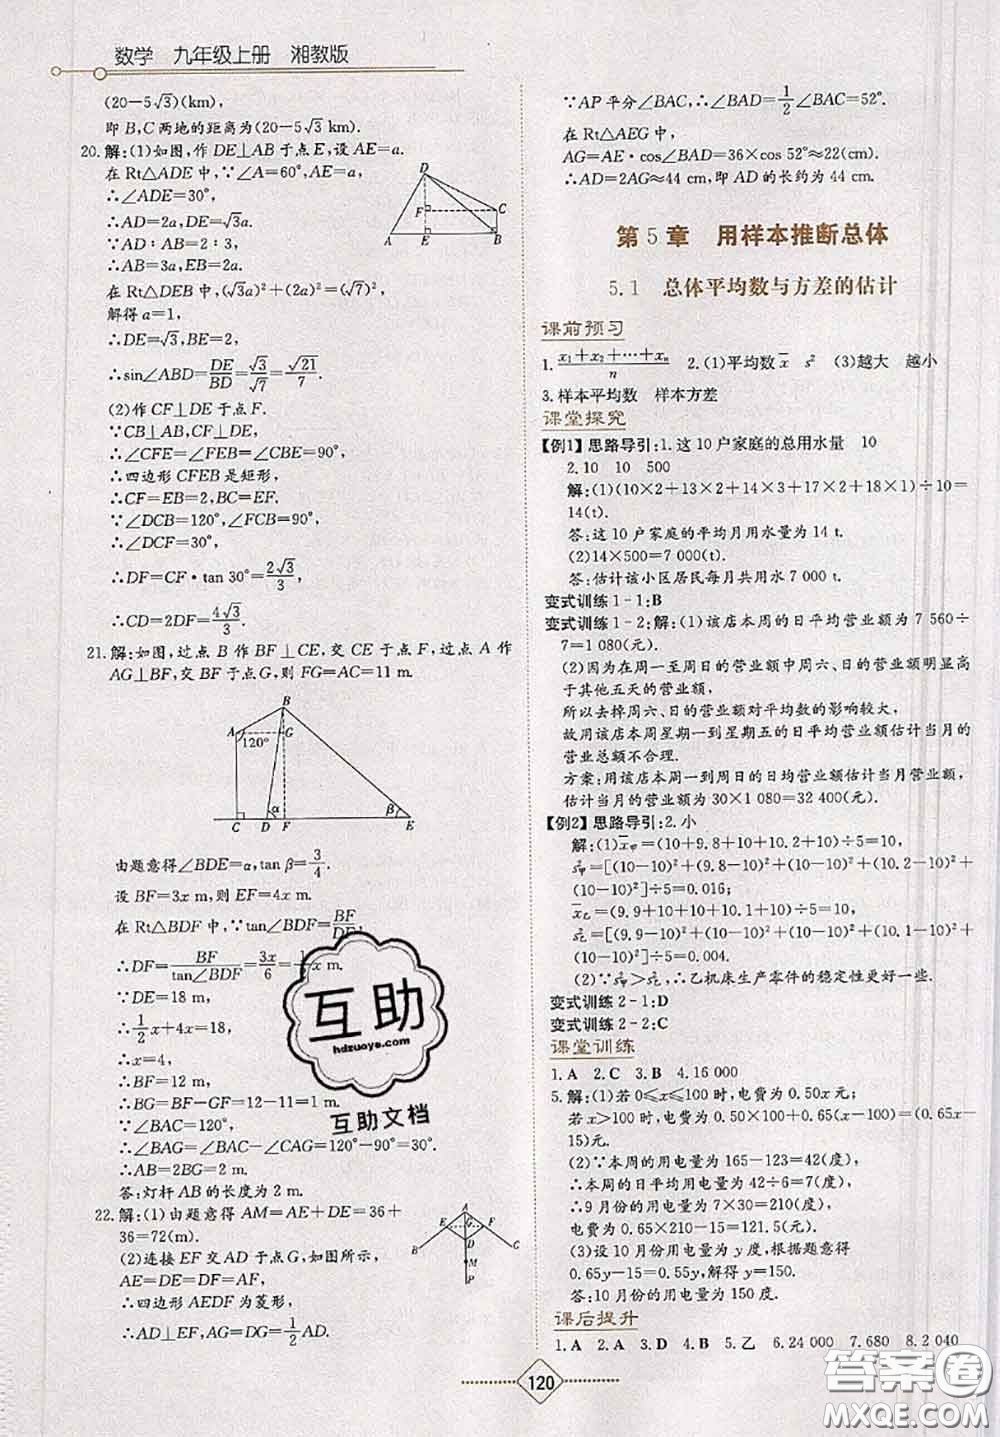 数学 九年级上册 湘教版
(20-5√3)(km),
即B,C两地的距离为(20-5√3 km).
20.解:(1)如图,作DE⊥AB于点E,设AE=a.
在Rt△ADE中,∵∠A=60°,AE=a,
∴∠ADE=30°,
∴AD=2a,DE=√3a.
∵AD∶AB=2∶3,
∴AB=3a,EB=2a.
在Rt△DEB中,(√3a)²+(2a)²=(√7)²,
解得a=1,
∴DE=√3,BE=2.
∴sin∠ABD=DE/BD=√3/√7=√21/7.
(2)作CF⊥DE于点F.
∵CB⊥AB,CF⊥DE,
∴∠CFE=∠FEB=∠CBE=90°,
∴四边形CFEB是矩形,
∴CF=EB=2,BC=EF.
∵∠DCB=120°,∠FCB=90°,
∴∠DCF=30°,
∴DF=CF·tan 30°=2√3/3.
∴CD=2DF=4√3/3.
21.解:如图,过点B作BF⊥CE,交CE于点F,过点A作
AG⊥BF,交BF于点G,则FG=AC=11 m.
B
A
120°
G
C D α F β E
由题意得∠BDE=α,tan β=3/4.
设BF=3x m,则EF=4x m.
在Rt△BDF中,∵tan∠BDF=BF/DF,
∴DF=BF/tan∠BDF=3x/6=1/2 x m.
∵DE=18 m,
∴1/2x+4x=18,
∴x=4,
∴BF=12 m,
∴BG=BF-GF=12-11=1(m).
∵∠BAC=120°,
∴∠BAG=∠BAC-∠CAG=120°-90°=30°.
∴AB=2BG=2 m.
答:灯杆AB的长度为2 m.
22.解:(1)由题意得AM=AE+DE=36+
36=72(m).
(2)连接EF交AD于点G,如图所示,
AE=DE=DF=AF=36,
∴四边形AEDF为菱形,
∴AD⊥EF,AG=DG=1/2AD.
∵AP平分∠BAC,∴∠BAD=1/2∠BAC=52°.
在Rt△AEG中,
AG=AE·cos∠BAD=36×cos 52°≈22(cm).
∴AD=2AG≈44 cm,即AD的长约为44 cm.
第5章 用样本推断总体
5.1 总体平均数与方差的估计
课前预习
1.(x₁+x₂+…+xₙ)/n 2.(1)平均数x̄ s² (3)越大 越小
3.样本平均数 样本方差
课堂探究
【例1】思路导引:1.这10户家庭的总用水量 10
2.10 10 500
解:(1)(10×2+13×2+14×3+17×2+18×1)÷10=
14(t).
答:这10户家庭的平均月用水量为14 t.
(2)14×500=7 000(t).
答:估计该小区居民每月共用水7 000 t.
变式训练1-1:B
变式训练1-2:解:(1)该店本周的日平均营业额为7 560÷
7=1 080(元).
(2)因为在周一至周日的营业额中周六、日的营业额明显高
于其他五天的营业额,
所以去掉周六、日的营业额对平均数的影响较大,
故用该店本周星期一到星期五的日平均营业额估计当月的
营业总额不合理.
方案:用该店本周一到周日的日均营业额估计当月营业额,
估计当月的营业额为30×1 080=32 400(元).
【例2】思路导引:2.小
解:(1)x̄甲=(10+9.8+10+10.2+10)÷5=10;
s²甲=[(10-10)²+(9.8-10)²+(10-10)²+(10.2-10)²+
(10-10)²]÷5=0.016;
x̄乙=(9.9+10+10+10.1+10)÷5=10;
s²乙=[(9.9-10)²+(10-10)²+(10-10)²+(10.1-10)²+
(10-10)²]÷5=0.004.
(2)∵s²甲>s²乙,∴乙机床生产零件的稳定性更好一些.
变式训练2-1:D
变式训练2-2:C
课堂训练
1.A 2.C 3.B 4.16 000
5.解:(1)若0≤x≤100时,电费为0.50x元;
若x>100时,电费为0.50×100+0.65(x-100)=(0.65x-
15)元.
(2)∵本周的用电量为165-123=42(度),
∴本周的日平均用电量为42÷6=7(度),
∴9月份的用电量为7×30=210(度),
电费为0.65×210-15=121.5(元).
(3)设10月份用电量为y度,根据题意得
0.65y-15=0.55y,解得y=150.
答:10月份的用电量为150度.
课后提升
1.A 2.A 3.D 4.B 5.乙 6.24 000 7.680 8.2 040
120
互助
hdzuoye.com
互助文档
答案圈
MXQE.COM